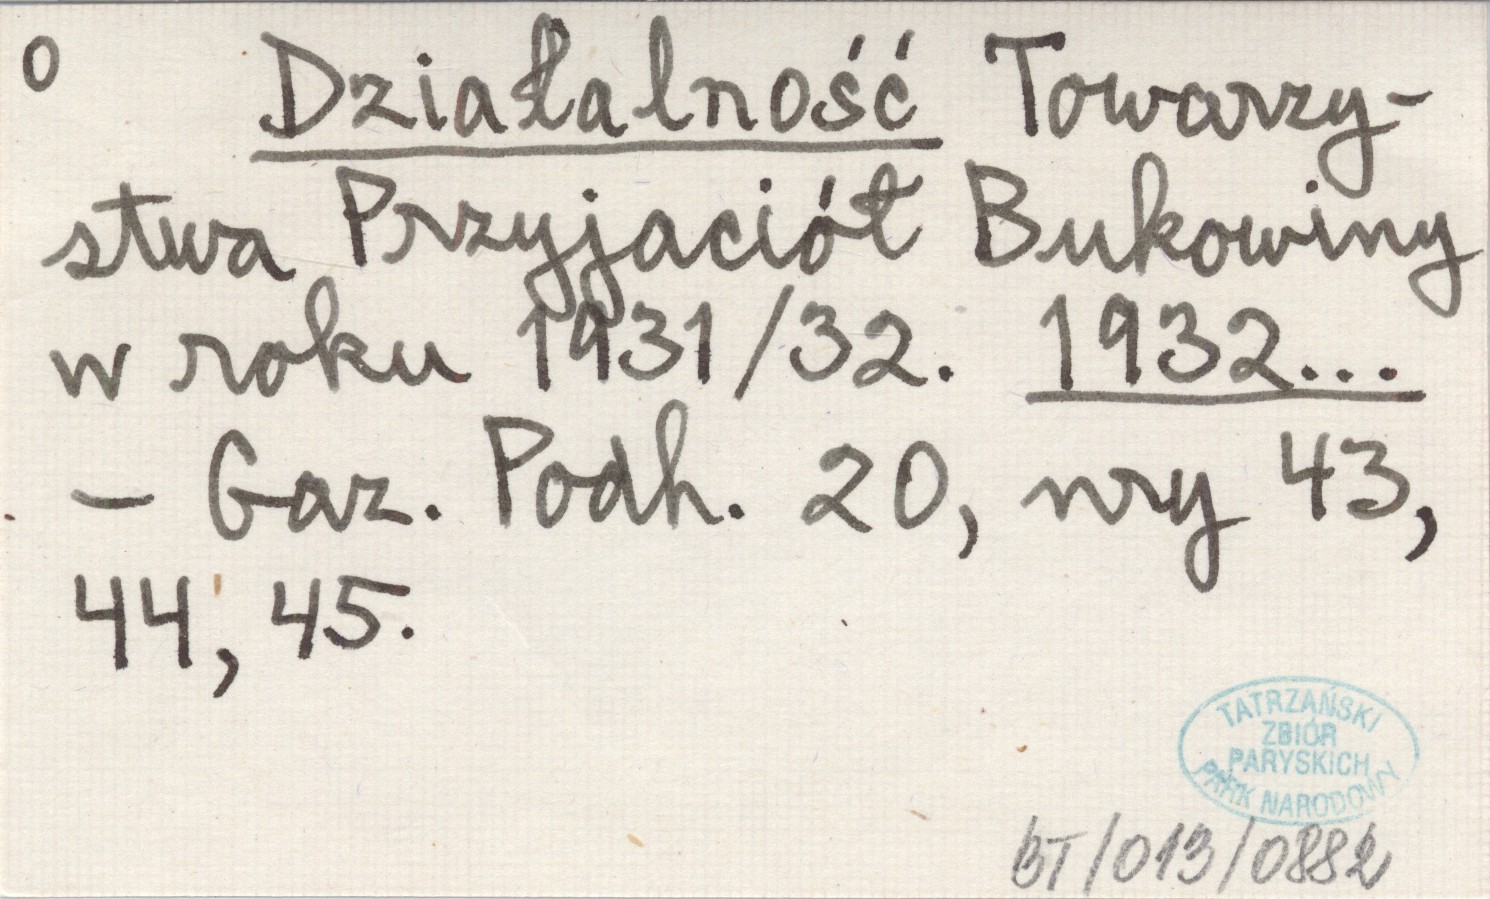 o Działalność Towarzy-
stwa Przyjaciół Bukowiny
w roku 1931/32. 1932...
– Gaz. Podh. 20, nry 43,
44, 45.
TATRZAŃSKI
ZBIÓR
PARYSKICH
PARK NARODOWY
BT/013/0882